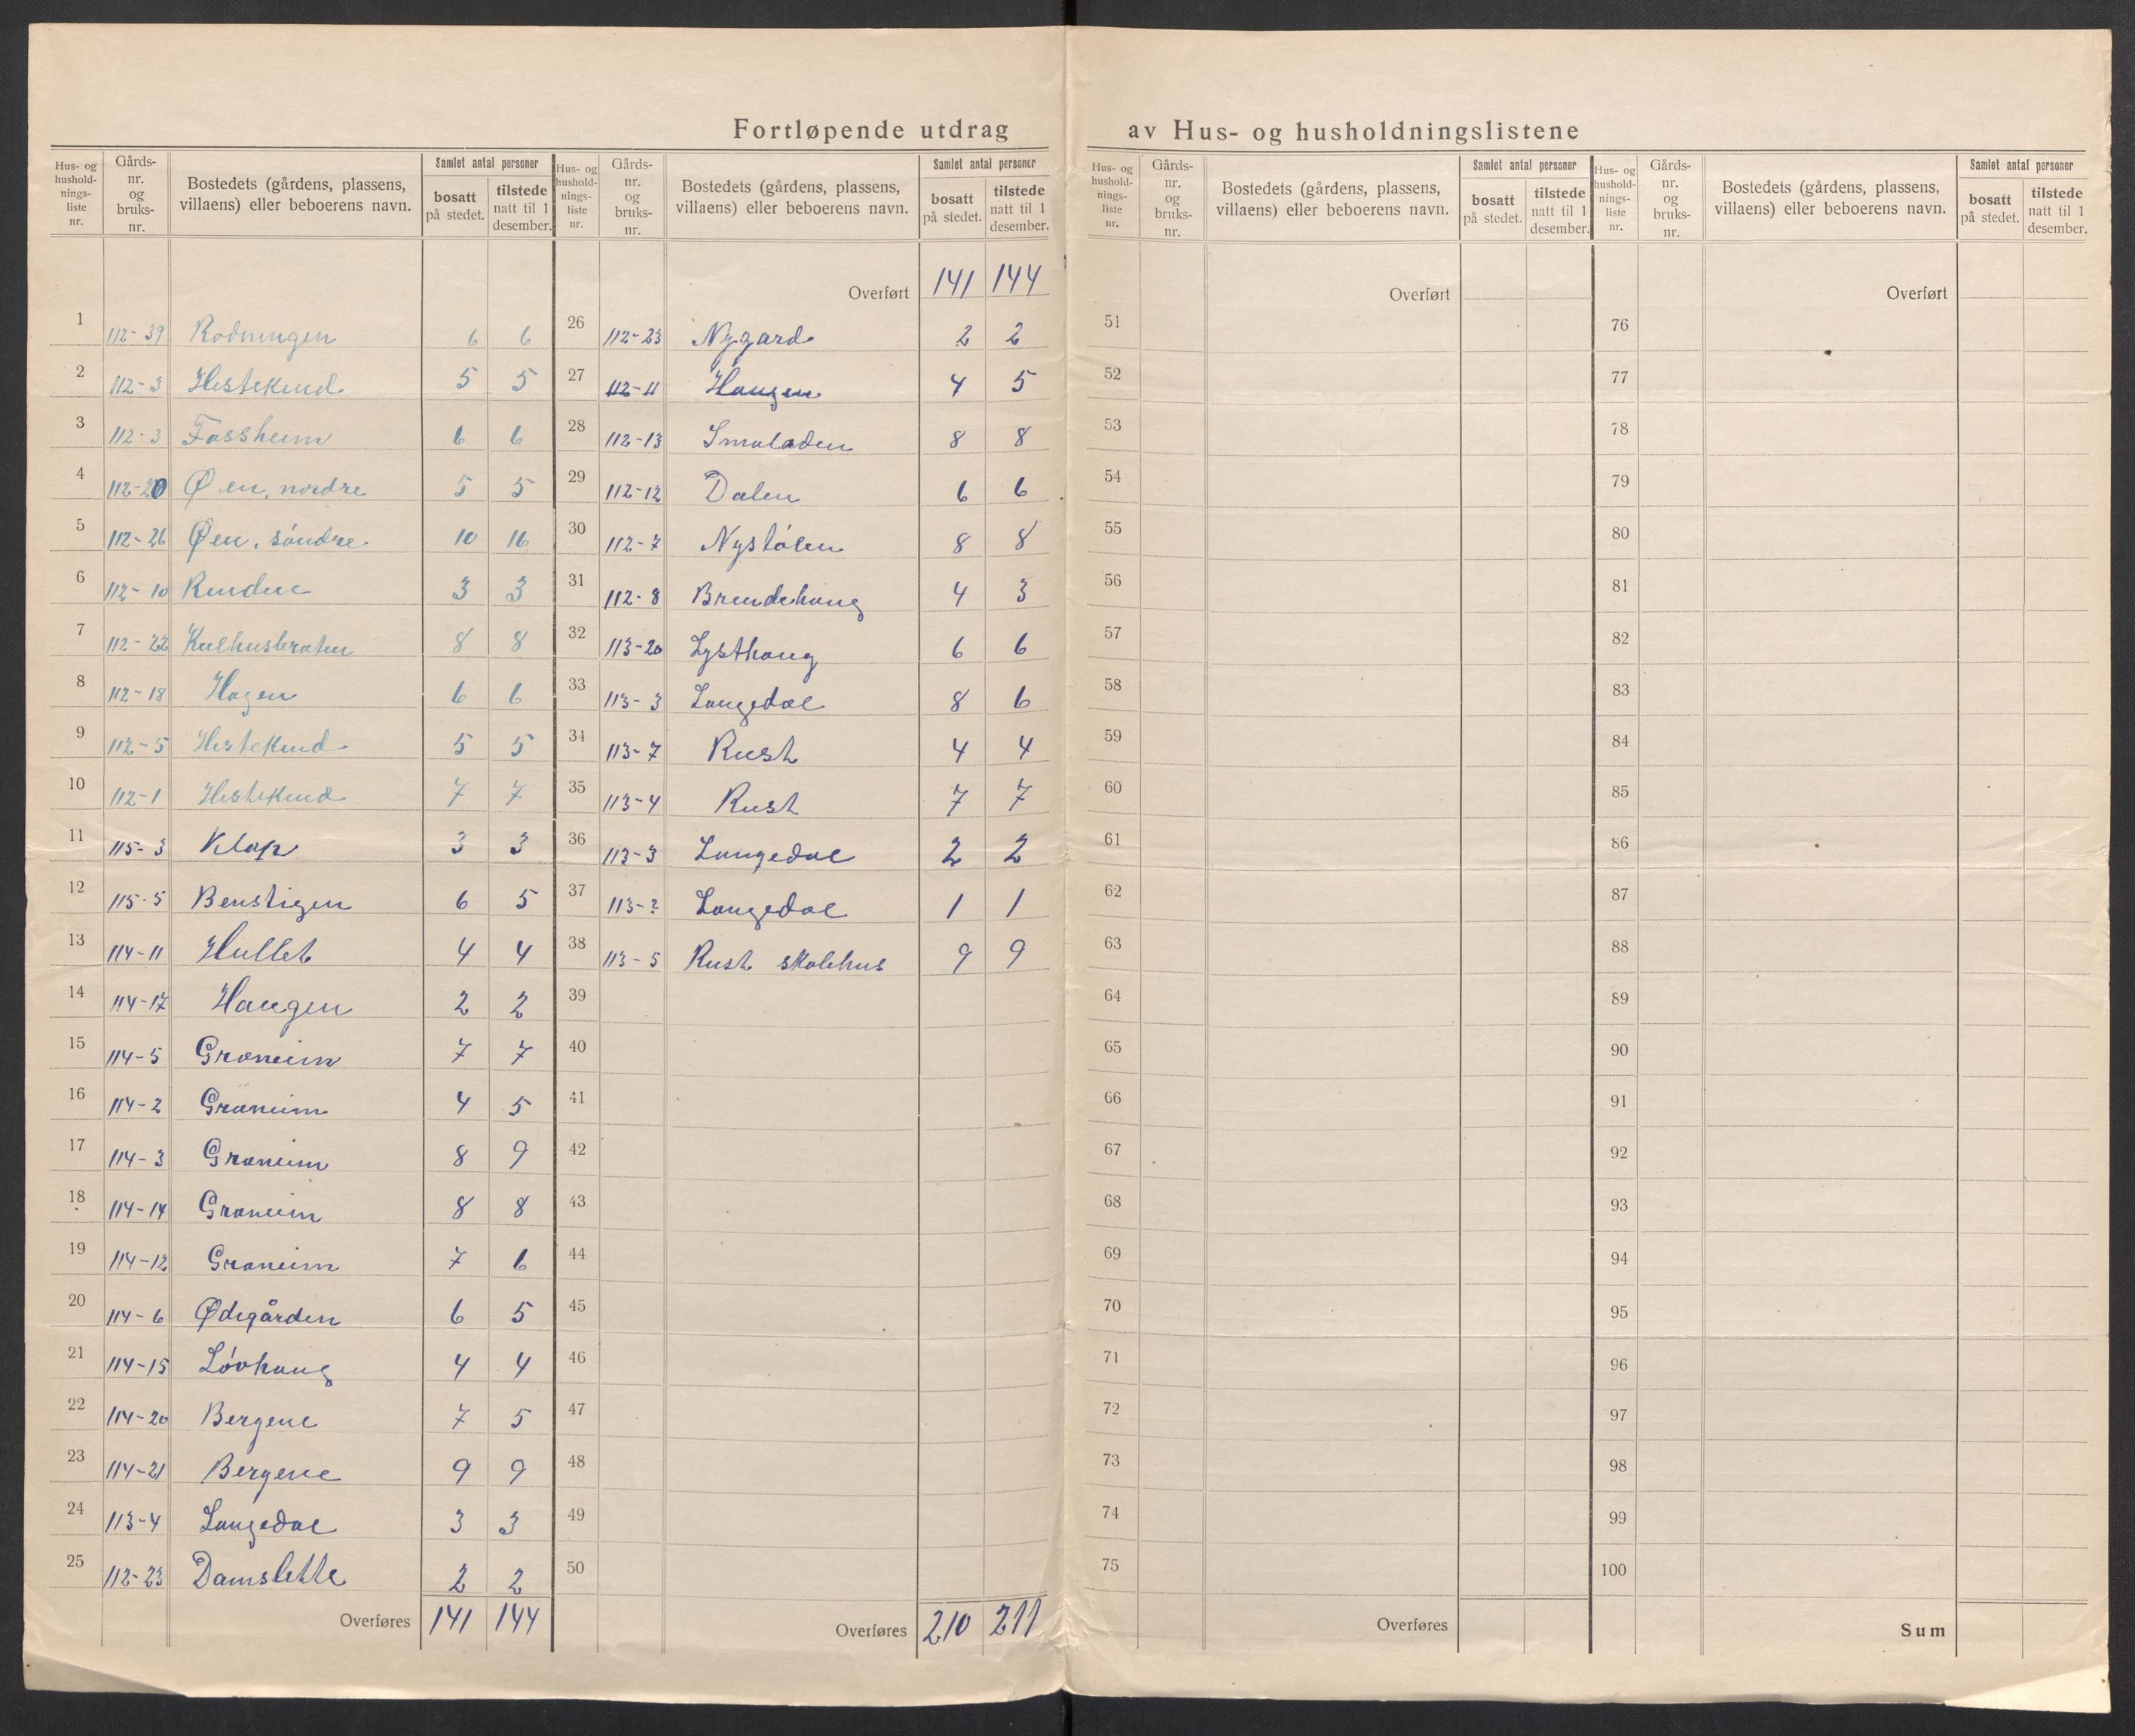 Fortløpende utdrag av Hus- og husholdningslistene
Hus- og husholdnings-liste nr. | Gårds-nr. og bruks-nr. | Bostedets (gårdens, plassens, villaens) eller beboerens navn. | Samlet antal personer | bosatt på stedet. | tilstede natt til 1 desember.
1 112-39 Rodningen 6 6
2 112-3 Hestekind 5 5
3 112-3 Fossheim 6 6
4 112-20 Øen, nordre 5 5
5 112-26 Øen, søndre 10 16
6 112-10 3 3
7 112-22 Kulhusbraten 8 8
8 112-18 Hagen 6 6
9 112-5 Hestekind 5 5
10 112-1 Hestekind 7 7
11 115-3 Klop 3 3
12 115-5 Benstigen 6 5
13 114-11 Hullet 4 4
14 114-17 Haugen 2 2
15 114-5 Graneim 7 7
16 114-2 Graneim 4 5
17 114-3 Graneim 8 9
18 114-14 Graneim 8 8
19 114-12 Graneim 7 6
20 114-6 Ødegården 6 5
21 114-15 Løvhaug 4 4
22 114-20 Bergene 7 5
23 114-21 Bergene 9 9
24 113-4 Langedal 3 3
25 112-23 Damslette 2 2
Overføres 141 144
Hus- og husholdnings-liste nr. | Gårds-nr. og bruks-nr. | Bostedets (gårdens, plassens, villaens) eller beboerens navn. | Samlet antal personer | bosatt på stedet. | tilstede natt til 1 desember.
Overført 141 144
26 112-23 Nygard 2 2
27 112-11 Haugen 4 5
28 112-13 Smaladen 8 8
29 112-12 Dalen 6 6
30 112-7 Nystølen 8 8
31 112-8 Brendehaug 4 3
32 113-20 Lysthaug 6 6
33 113-3 Langedal 8 6
34 113-7 Rust 4 4
35 113-4 Rust 7 7
36 113-3 Langedal 2 2
37 113-? Langedal 1 1
38 113-5 Rust skolehus 9 9
39
40
41
42
43
44
45
46
47
48
49
50
Overføres 210 211
Hus- og husholdnings-liste nr. | Gårds-nr. og bruks-nr. | Bostedets (gårdens, plassens, villaens) eller beboerens navn. | Samlet antal personer | bosatt på stedet. | tilstede natt til 1 desember.
Overført
51
52
53
54
55
56
57
58
59
60
61
62
63
64
65
66
67
68
69
70
71
72
73
74
75
Overføres
Hus- og husholdnings-liste nr. | Gårds-nr. og bruks-nr. | Bostedets (gårdens, plassens, villaens) eller beboerens navn. | Samlet antal personer | bosatt på stedet. | tilstede natt til 1 desember.
Overført
76
77
78
79
80
81
82
83
84
85
86
87
88
89
90
91
92
93
94
95
96
97
98
99
100
Sum